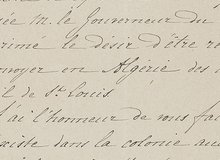 ée M. le Gouverneur du
rimé le désir d'être re
nvoyer en Algérie des
il de St. Louis.
J'ai l'honneur de vous fai
existe dans la colonie au